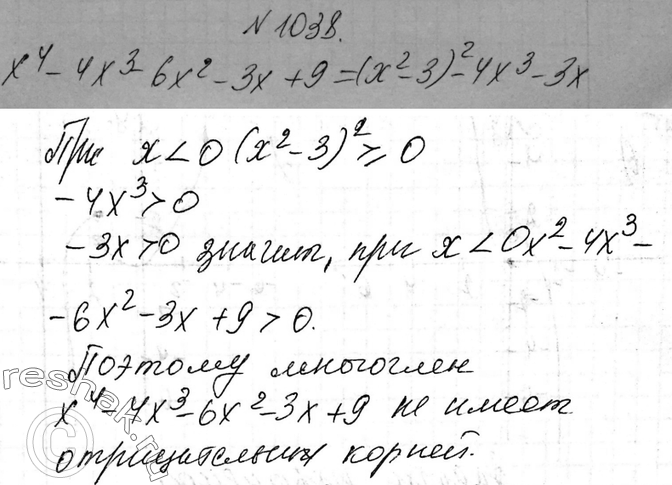 N 1038.
x⁴ - 4x³ - 6x² - 3x + 9 = (x² - 3)² - 4x³ - 3x
При x < 0 (x² - 3)² ≥ 0
-4x³ > 0
-3x > 0 значит, при x < 0 x² - 4x³ -
-6x² - 3x + 9 > 0.
Поэтому многоглен
x⁴ - 4x³ - 6x² - 3x + 9 не имеет
отрицательных корней.
reshak.ru